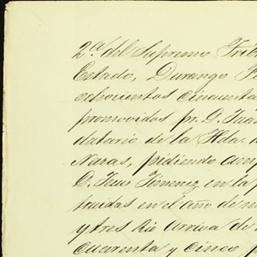 2ª del Supremo Trib
Estado, Durango
ochocientos cincuenta
promovidos pr. D. Juan
datario de la Hda. d
Naras, pidiendo
D. Jesus Jimenez en la
tuadas en el año de
y tres Rio arriva de
cuarenta y cinco p